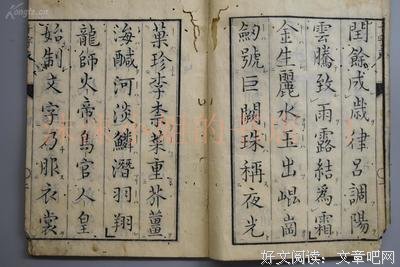 閏餘成歲律呂調陽
雲騰致雨露結為霜
金生麗水玉出崐崗
劒號巨闕珠稱夜光
菓珍李柰菜重芥薑
海醎河淡鱗潛羽翔
龍師火帝鳥官人皇
始制文字乃服衣裳
好文阅读：文章吧网